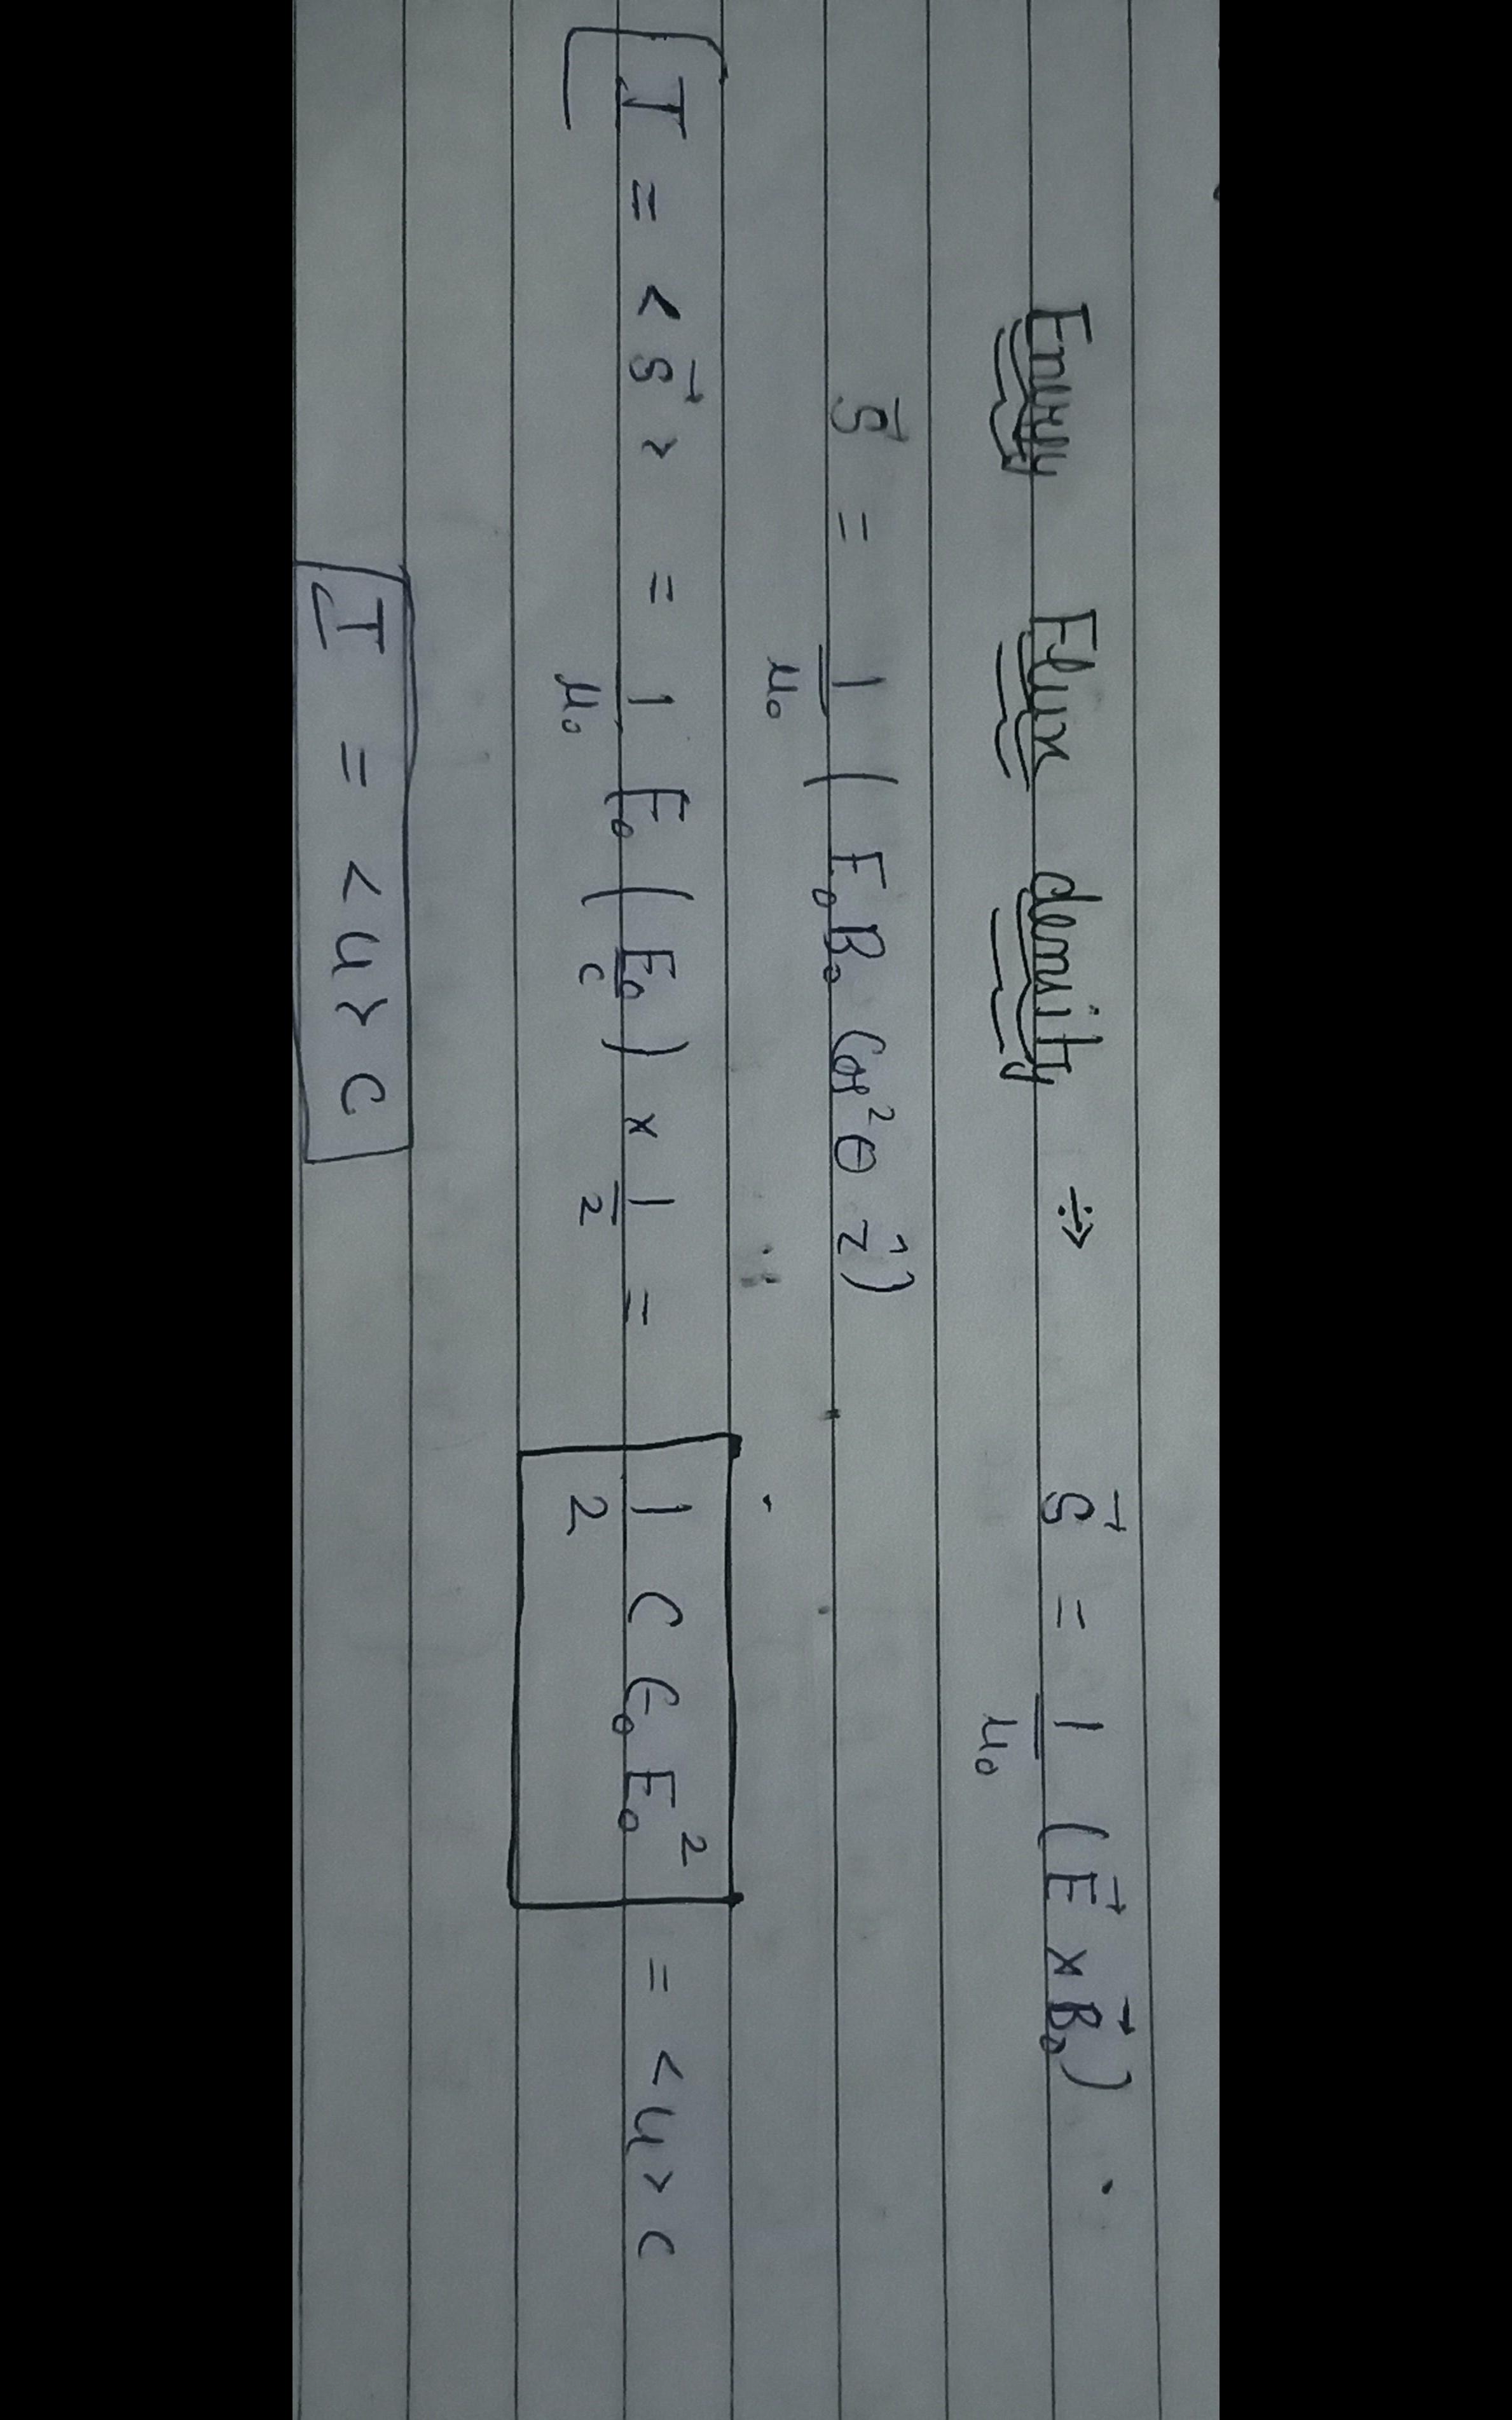 Energy Flux density ÷> S⃗ = 1/μ₀ (E⃗ × B⃗₀)
S⃗ = 1/μ₀ (E₀B₀ Cos²θ ẑ)
I = <S⃗> = 1/μ₀ E₀ (E₀/c) × 1/2 = 1/2 C ϵ₀ E₀² = <u> c
I = <u> c